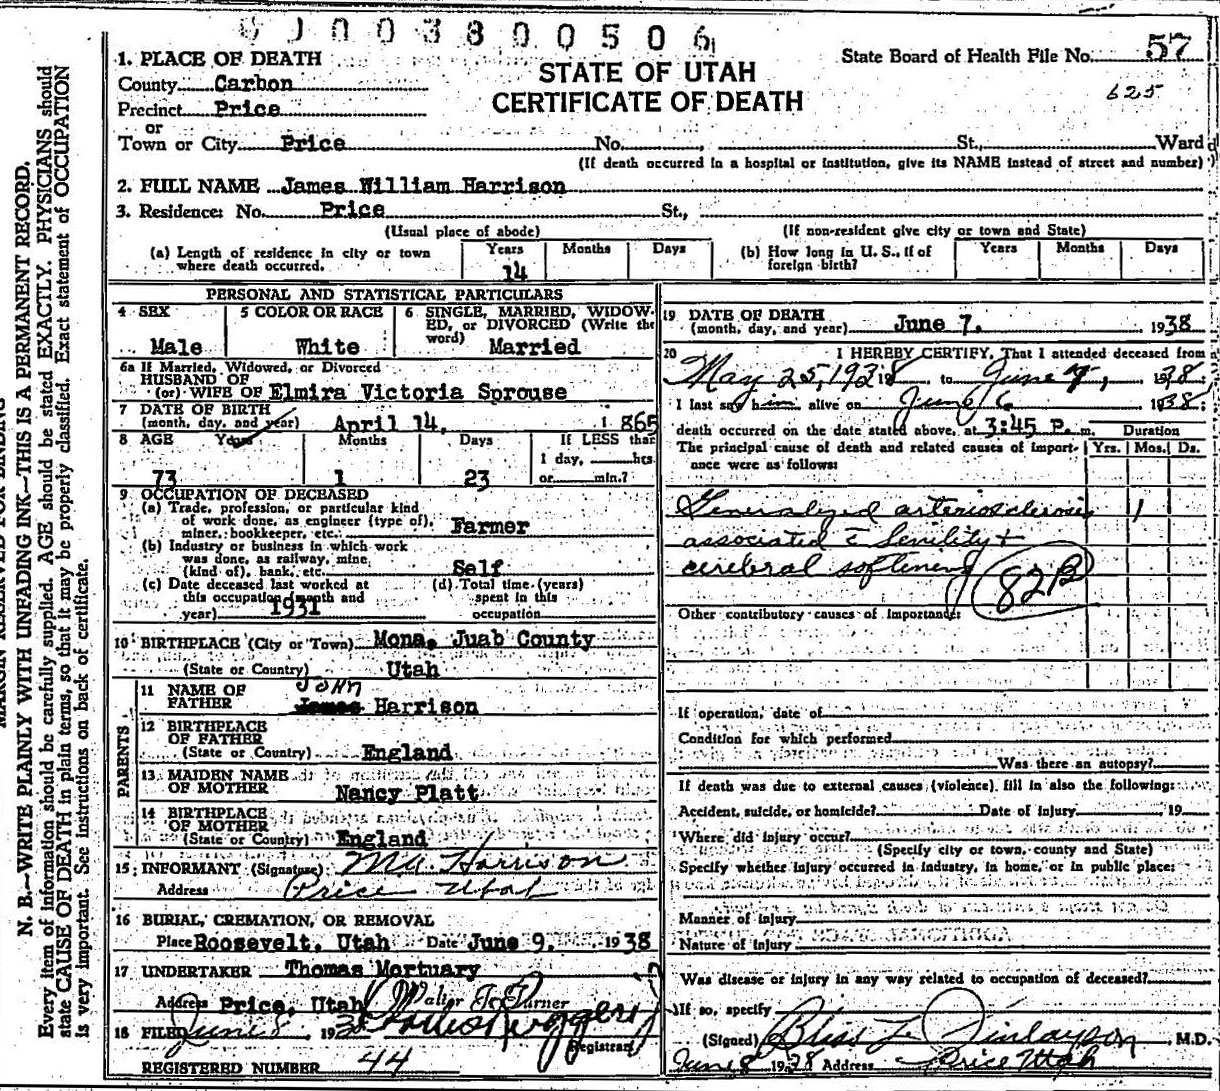 0 J 0 0 3 8 0 0 5 0 6
State Board of Health File No. 57
625
STATE OF UTAH
CERTIFICATE OF DEATH
1. PLACE OF DEATH
County Carbon
Precinct Price
or
Town or City Price No. , St., Ward
(If death occurred in a hospital or institution, give its NAME instead of street and number)
2. FULL NAME James William Harrison
3. Residence: No. Price St.,
(Usual place of abode) (If non-resident give city or town and State)
(a) Length of residence in city or town where death occurred. Years 14 Months Days
(b) How long in U. S., if of foreign birth? Years Months Days
PERSONAL AND STATISTICAL PARTICULARS
4 SEX Male
5 COLOR OR RACE White
6 SINGLE, MARRIED, WIDOWED, or DIVORCED (Write the word) Married
6a If Married, Widowed, or Divorced
HUSBAND OF
(or) WIFE OF Elmira Victoria Sprouse
7 DATE OF BIRTH
(month, day, and year) April 14, 1865
8 AGE Years 73 Months 1 Days 23 If LESS than 1 day, hrs or min.?
9 OCCUPATION OF DECEASED
(a) Trade, profession, or particular kind
of work done, as engineer (type of),
miner, bookkeeper, etc. Farmer
(b) Industry or business in which work
was done, as railway, mine,
(kind of), bank, etc. Self
(c) Date deceased last worked at
this occupation (month and
year) 1931
(d) Total time (years)
spent in this
occupation
10 BIRTHPLACE (City or Town) Mona, Juab County
(State or Country) Utah
PARENTS
11 NAME OF FATHER John James Harrison
12 BIRTHPLACE OF FATHER
(State or Country) England
13 MAIDEN NAME OF MOTHER Nancy Platt
14 BIRTHPLACE OF MOTHER
(State or Country) England
15 INFORMANT (Signature) Harrison
Address Price Utah
16 BURIAL, CREMATION, OR REMOVAL
Place Roosevelt, Utah Date June 9, 1938
17 UNDERTAKER Thomas Mortuary
Address Price, Utah Walter
18 FILED June 8 193
Registrar
REGISTERED NUMBER 44
19 DATE OF DEATH
(month, day, and year) June 7, 1938
20 I HEREBY CERTIFY, That I attended deceased from
May 25, 1938 to June 7, 1938;
I last saw him alive on June 6 1938;
death occurred on the date stated above, at 3:45 P. m. Duration
The principal cause of death and related causes of importance were as follows: Yrs. Mos. Ds.
Generalized arteriosclerosis 1
associated c̄ Senility +
cerebral softening 82B
Other contributory causes of importance:
If operation, date of
Condition for which performed
Was there an autopsy?
If death was due to external causes (violence) fill in also the following:
Accident, suicide, or homicide? Date of injury 19
Where did injury occur?
(Specify city or town, county and State)
Specify whether injury occurred in industry, in home, or in public place:
Manner of injury
Nature of injury
Was disease or injury in any way related to occupation of deceased?
If so, specify
(Signed) Bliss L Finlayson, M.D.
June 8 1938 Address Price Utah
MARGIN RESERVED FOR BINDING
N. B.—WRITE PLAINLY WITH UNFADING INK—THIS IS A PERMANENT RECORD.
Every item of information should be carefully supplied. AGE should be stated EXACTLY. PHYSICIANS should
state CAUSE OF DEATH in plain terms, so that it may be properly classified. Exact statement of OCCUPATION
is very important. See instructions on back of certificate.